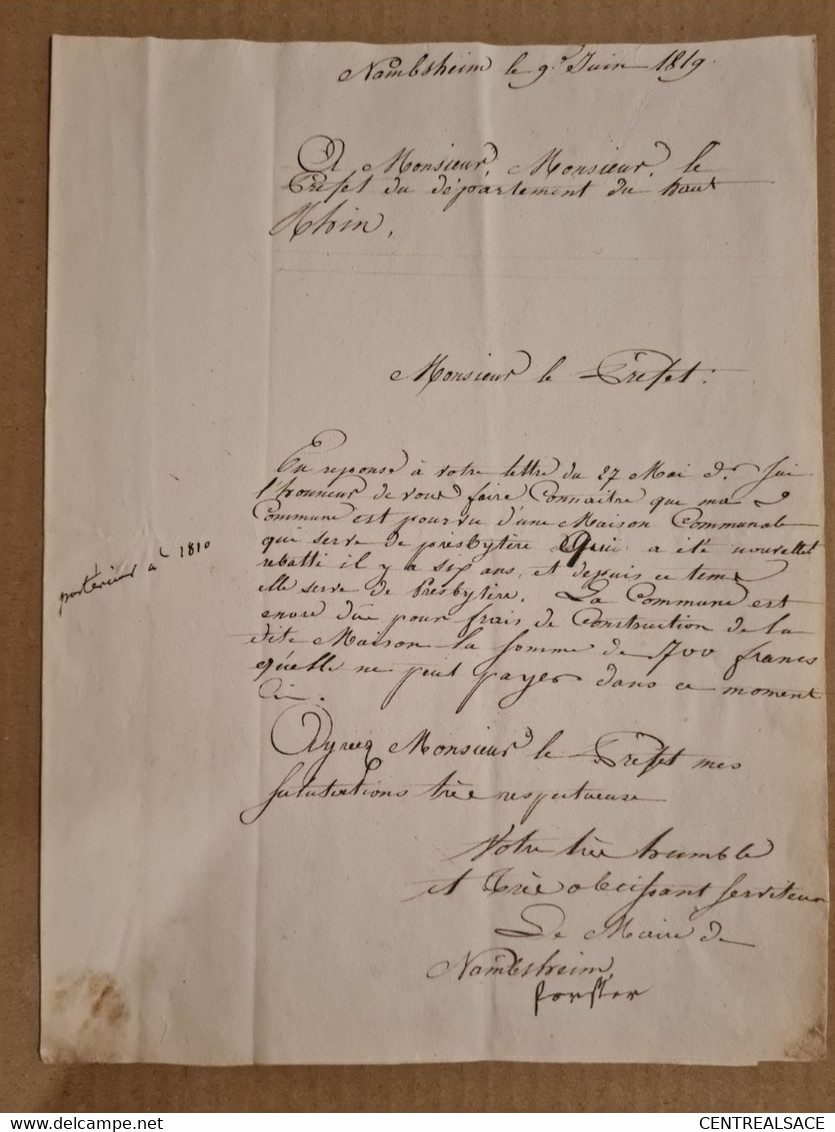 Nambsheim le 9.e Juin 1819.
A Monsieur, Monsieur, le
Prefet du département du haut
Rhin,
Monsieur le Prefet:
En reponse à votre lettre du 27 Mai d.r jai
l'honneur de vous faire Connaitre que ma
Commune est pourvu d'une Maison Communale
qui serve de presbytère qui a été nouvellet
rebatti il y a six ans, et depuis ce tems
elle serve de Presbytère. La Commune est
encore due pour frais de Construction de la
dite Maison la somme de 700 francs
quelle ne peut payer dans ce moment
ci.
postérieur à 1810
Agreez Monsieur le Prefet mes
salutations trèe respectueuse
Votre trèe humble
et trèe obeissant serviteur
Le Maire de
Nambsheim,
forster
CENTREALSACE